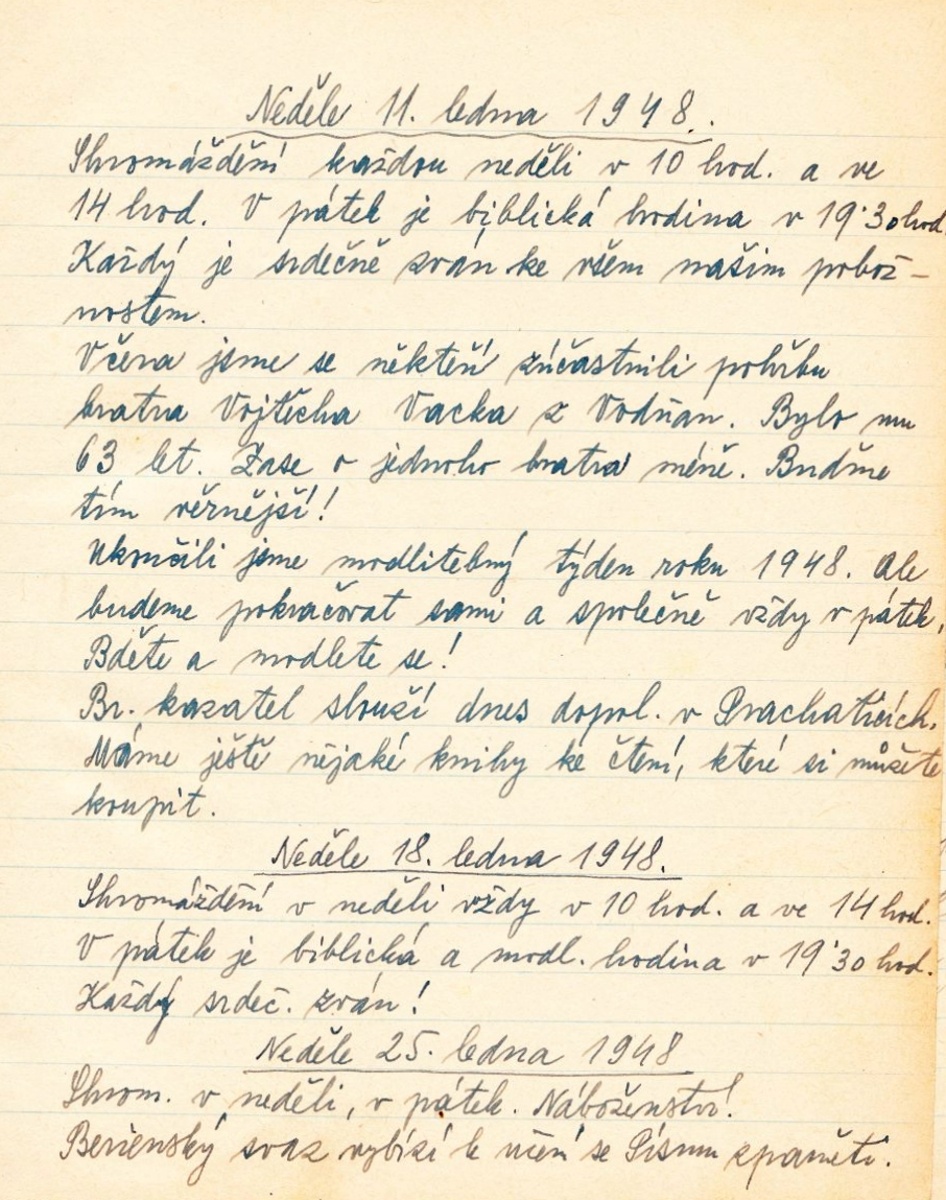 Neděle 11. ledna 1948.
Shromáždění každou neděli v 10 hod. a ve
14 hod. V pátek je biblická hodina v 19˙30 hod.
Každý je srdečně zván ke všem našim pobož-
nostem.
Včera jsme se někteří zúčastnili pohřbu
bratra Vojtěcha Vacka z Vodňan. Bylo mu
63 let. Zase o jednoho bratra méně. Buďme
tím věrnější!
Ukončili jsme modlitebný týden roku 1948. Ale
budeme pokračovat sami a společně vždy v pátek.
Bděte a modlete se!
Br. kazatel slouží dnes dopol. v Prachaticích.
Máme ještě nějaké knihy ke čtení, které si můžete
koupit.
Neděle 18. ledna 1948.
Shromáždění v neděli vždy v 10 hod. a ve 14 hod.
V pátek je biblická a modl. hodina v 19˙30 hod.
Každý srdeč. zván!
Neděle 25. ledna 1948
Shrom. v neděli, v pátek. Náboženství!
Berienský svaz vybízí k učení se Písmu zpaměti.